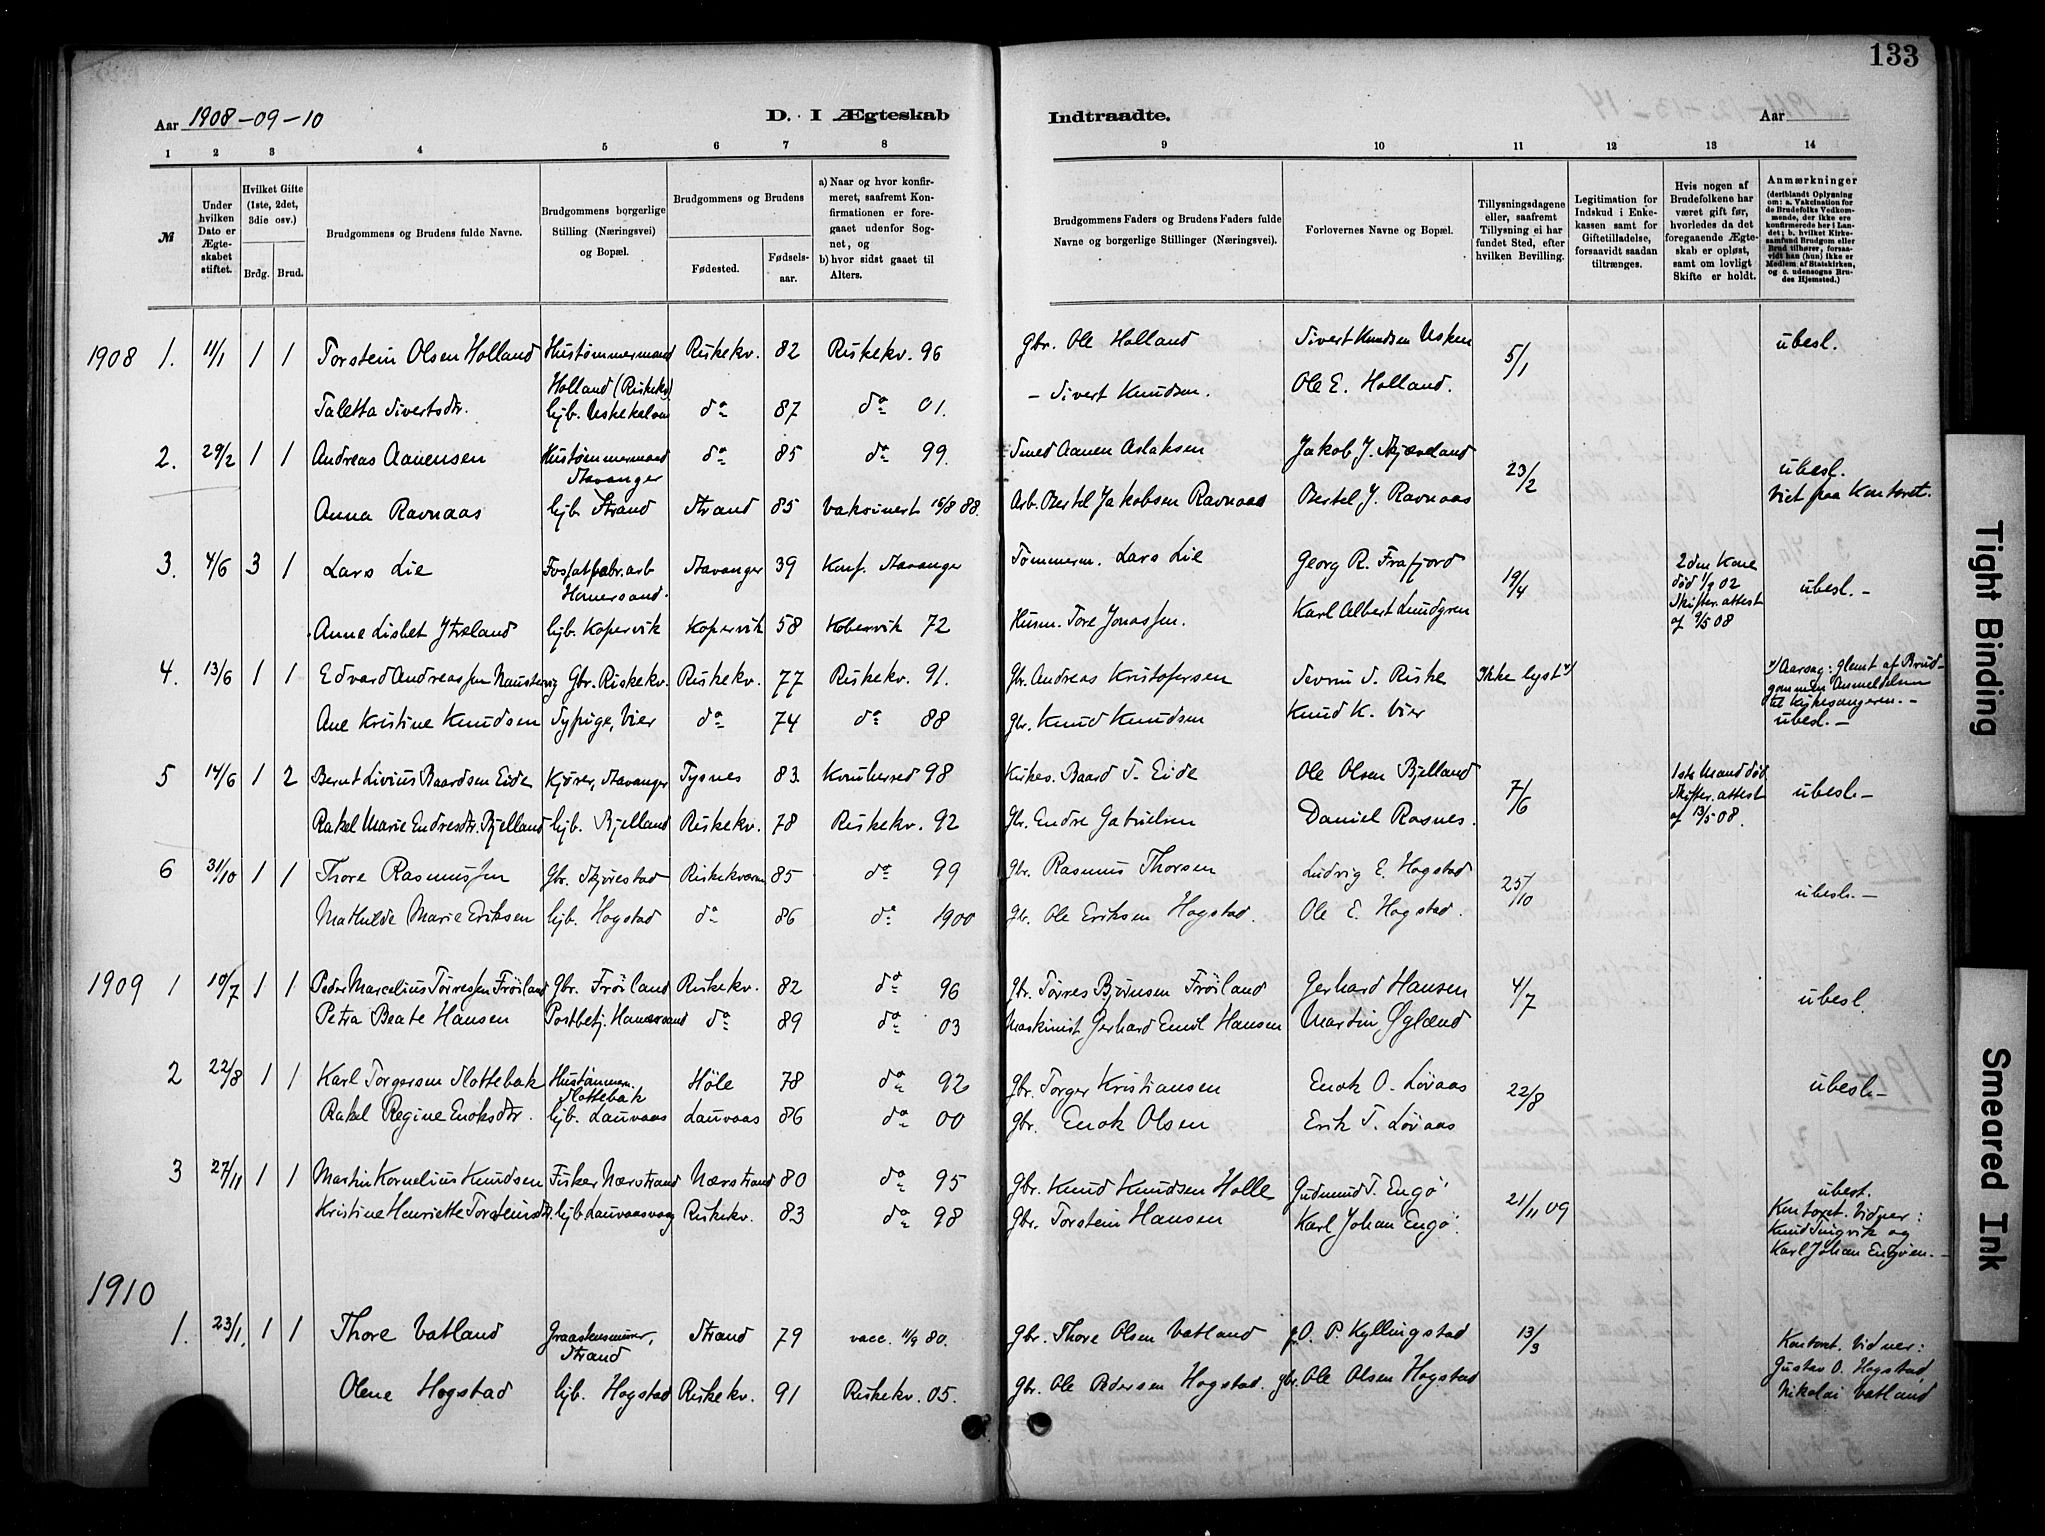 133
Aar 1908-09-10 D. I Ægteskab Indtraadte. Aar
1 2 3 4 5 6 7 8 9 10 11 12 13 14
№
Under hvilken Dato er Ægteskabet stiftet.
Hvilket Gifte (1ste, 2det, 3die osv.)
Brdg. Brud.
Brudgommens og Brudens fulde Navne.
Brudgommens borgerlige Stilling (Næringsvei) og Bopæl.
Brudgommens og Brudens
Fødested. Fødsels-aar.
a) Naar og hvor konfirmeret, saafremt Konfirmationen er foregaaet udenfor Sognet, og
b) hvor sidst gaaet til Alters.
Brudgommens Faders og Brudens Faders fulde Navne og borgerlige Stillinger (Næringsvei).
Forlovernes Navne og Bopæl.
Tillysningsdagene eller, saafremt Tillysning ei har fundet Sted, efter hvilken Bevilling.
Legitimation for Indskud i Enkekassen samt for Giftetilladelse, forsaavidt saadan tiltrænges.
Hvis nogen af Brudefolkene har været gift før, hvorledes da det foregaaende Ægteskab er opløst, samt om lovligt Skifte er holdt.
Anmærkninger
(deriblandt Oplysning om: a. Vakcination for de Brudefolks Vedkommende, der ikke ere konfirmerede her i Landet; b. hvilket Kirkesamfund Brudgom eller Brud tilhører, forsaavidt han (hun) ikke er Medlem af Statskirken, og c. udensogns Brudes Hjemsted.)
1908 1. 11/1 1 1 Torstein Olsen Holland Hustømmermand Holland (Riskekv.) Riskekv. 82 Riskekv. 96 Gbr. Ole Holland Sivert Knudsen Usken 5/1 ubesl.
Taletta Sivertsdtr. hjb. Uskekalven do 87 do 01. - Sivert Knudsen. Ole E. Holland.
2. 29/2 1 1 Andreas Aanensen Hustømmermand Stavanger do 85 do 99. Smed Aanen Aslaksen Jakob J. Skjæveland 23/2 ubesl.
Viet paa Kontoret.
Anna Ravnaas hjb. Strand Strand 85 Vaksinert 15/8 88. Arb. Bertel Jakobsen Ravnaas Bertel J. Ravnaas
3. 4/6 3 1 Lars Lie Fosfatfabr. arb Homersand. Stavanger 39 Konf. Stavanger Tømmerm. Lars Lie Georg R. Frafjord 19/4 2den Kone død 1/9 02 Skifter. attest af 9/5 08 ubesl. -
Anne Lisbet Ytreland hjb. Kopervik Kopervik 58 Kobervik 72 Husm. Tore Jonassen. Karl Albert Lundgren
4. 13/6 1 1 Edvard Andreassen Naustervig Gbr. Riskekv. Riskekv. 77 Riskekv. 91. Gbr. Andreas Kristofersen Sevrin S. Riske Ikke lyst x) x) Aarsag: glemt af Brudgommen Anmeldelsen til Kirkesangeren. -
ubesl. -
Ane Kristine Knudsen Sypige, Vier do 74 do 88 gbr. Knud Knudsen Knud K. Vier
5 14/6 1 2 Bernt Livius Baardsen Eide Kjører, Stavanger Tysnes 83. Kvinherred 98 Kirkes. Baard T. Eide Ole Olsen Bjelland 7/6 1ste Mand død Skifter. attest af 13/5 08. ubesl. -
Rakel Marie Endresdtr. Bjelland hjb. Bjelland Riskekv. 78 Riskekv. 92 Gbr. Endre Gabrielsen Daniel Rosnes.
6 31/10 1 1 Thore Rasmussen Gbr. Skjørestad Riskekværn 85 do 99 gbr. Rasmus Thorsen Ludvig E. Hogstad 25/10 ubesl. -
Mathilde Marie Eriksen hjb. Hogstad do 86 do 1900 Gbr. Ole Eriksen Hogstad. Ole E. Hogstad.
1909 1 10/7 1 1 Peder Marcelius Tørressen Frøiland Gbr. Frøiland Riskekv. 82 do 96 gbr. Tørres Bjørnsen Frøiland Gerhard Hansen 4/7 ubesl.
Petra Beate Hansen Postbetj. Homersand do 89 do 03 Maskinist Gerhard Emil Hansen Martin Øglænd
2 22/8 1 1 Karl Torgersen Slottebak Hustømmerm. Slottebak Høle 78 do 92 gbr. Torger Kristiansen Enok O. Løvaas 22/8 ubesl. -
Rakel Regine Enoksdtr. hjb. Lauvaas Lauvaas 86 do 00 gbr. Enok Olsen Erik T. Løvaas
3 27/11 1 1 Martin Kornelius Knudsen Fisker Nærstrand Nærstrand 80 do 95 Gbr. Knud Knudsen Halle Gudmund T. Engø 21/11 09 ubesl.
Kristine Henriette Torsteinsdtr. hjb. Lauvaasvaag Riskekv. 83 do 98 Gbr. Torstein Hansen Karl Johan Engø. Kontoret. Vidner:
Knud Tingvik og
Karl Johan Engøen. -
1910
1. 23/1. 1 1 Thore Vatland Graastensminerer, Strand Strand 79 vacc. 11/9 80. Gbr. Thore Olsen Vatland O. P. Kyllingstad 13/3 Kontoret. Vidner:
Gustav O. Hogstad,
Nikolai Vatland
Olene Hogstad hjb. Hogstad Riskekv. 91 Riskekv. 05. Gbr. Ole Pedersen Hogstad. gbr. Ole Olsen Hogstad
Tight Binding
Smeared Ink